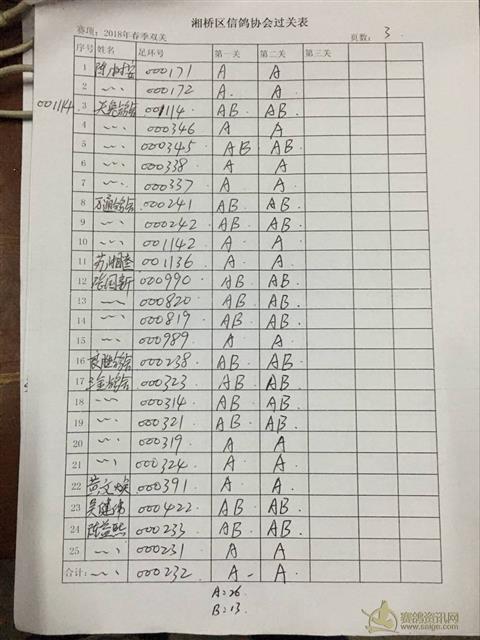 湘桥区信鸽协会过关表
赛项: 2018年春季双关 页数: 3
序号 姓名 足环号 第一关 第二关 第三关
1 000171 A A
2 〃 000172 A A
001114 3 000114 AB AB
4 〃 000346 A A
5 〃 000345 AB AB
6 〃 000338 A A
7 〃 000337 A A
8 万通鸽舍 000241 AB AB
9 〃 000242 AB AB
10 〃 001142 A A
11 苏湘奎 001136 A A
12 张国新 000990 AB AB
13 〃 000820 AB AB
14 〃 000819 AB AB
15 〃 000989 A A
16 000238 AB AB
17 000323 AB AB
18 〃 000314 AB AB
19 〃 000321 AB AB
20 〃 000319 A A
21 〃 000324 A A
22 黄文焕 000391 A A
23 吴健伟 000422 AB AB
24 陈益熙 000233 AB AB
25 〃 000231 A A
合计: 〃 000232 A A
A=26
B=13.
赛鸽资讯网
www.saige.com